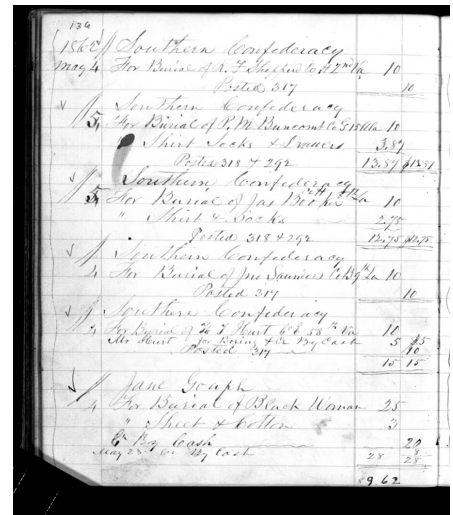 136
1862 Southern Confederacy
May 4 For Burial of R. F. Shepherd Co H 2nd Va 10
Posted 317 10
Southern Confederacy
5 For Burial of P. M. Buncomb Co G 18 Ala 10
Shirt Socks & Drawers 3.87
Posted 318 & 292 13.87 13.87
Southern Confederacy
5 For Burial of Jas Booker Co H La 10
" Shirt & Socks 2.75
Posted 318 & 292 12.75 12.75
Southern Confederacy
4 For Burial of Jno Saunders Co B 9th La 10
Posted 317 10
Southern Confederacy
4 For Burial of Hurt Co E 58th Va 10
Mr Hurt for Boxing &c Cr By Cash 5 5
Posted 317 10
15 15
Jane Gouph
4 For Burial of Black Woman 25
" Sheet & Cotton 3
Cr By Cash 20
May 23rd Cr By Cash 8
28 28
89.62